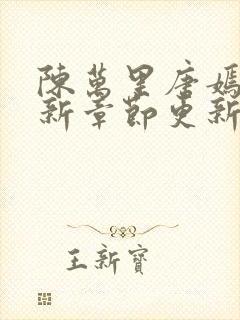 陳萬里唐嫣
新章節更新
王新寶